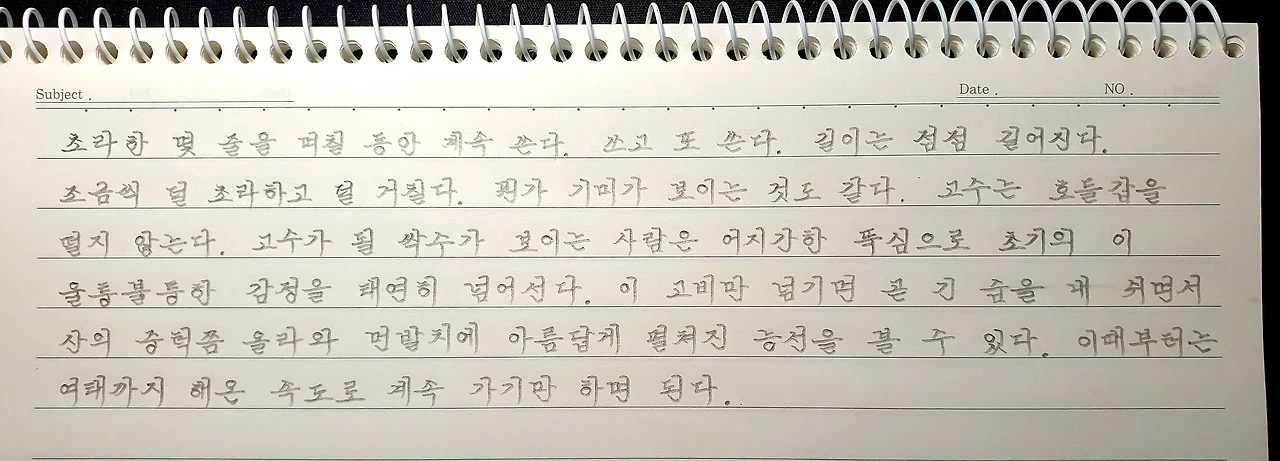 Subject .
Date .
NO .
초라한 몇 줄을 며칠 동안 계속 쓴다. 쓰고 또 쓴다. 길이는 점점 길어진다.
조금씩 덜 초라하고 덜 거칠다. 뭔가 기미가 보이는 것도 같다. 고수는 호들갑을
떨지 않는다. 고수가 될 싹수가 보이는 사람은 어지간한 뚝심으로 초기의 이
울퉁불퉁한 감정을 태연히 넘어선다. 이 고비만 넘기면 곧 긴 숨을 내 쉬면서
산의 중턱쯤 올라와 먼발치에 아름답게 펼쳐진 능선을 볼 수 있다. 이때부터는
여태까지 해온 속도로 계속 가기만 하면 된다.